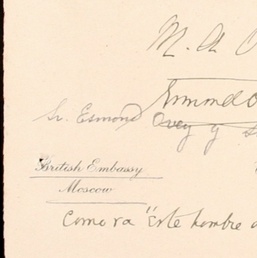 M. A
Esmond O
Sr. Esmond Ovey y
British Embassy
Moscow
Como va "Este hombre